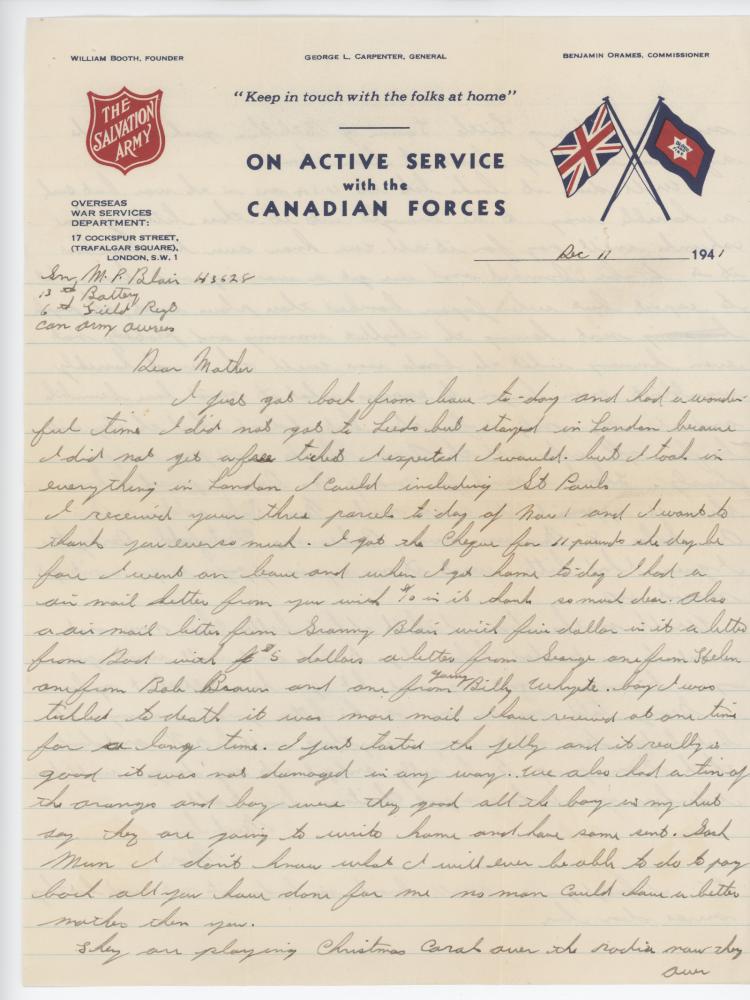 WILLIAM BOOTH, FOUNDER
GEORGE L. CARPENTER, GENERAL
BENJAMIN ORAMES, COMMISSIONER
THE
SALVATION
ARMY
"Keep in touch with the folks at home"
ON ACTIVE SERVICE
with the
CANADIAN FORCES
OVERSEAS
WAR SERVICES
DEPARTMENT:
17 COCKSPUR STREET,
(TRAFALGAR SQUARE),
LONDON, S.W. 1
Dec 11 1941
Gnr M. P. Blair H3628
13th Battery
6th Field Regt
Can army overs
Dear Mother
I just got back from leave to-day and had a wonder-
ful time I did not got to Leeds but stayed in London because
I did not get a free ticket I expected I would. but I took in
everything in London I could including St Pauls
I received your three parcels to day of Nov 1 and I want to
thank you ever so much. I got the Cheque for 11 pounds the day be
fore I went on leave and when I got home to-day I had a
air mail letter from you with in it thank so much dear. also
a air mail letter from Granny Blair with five dollar in it a letter
from Dad with $5 dollars a letter from George one from Helen
one from Bob Brown and one from young Billy Whyte. boy I was
tickled to death it was more mail I have received at one time
for a long time. I just tasted the jelly and it really is
good it was not damaged in any way. we also had a tin of
the oranges and boy were they good all the boy in my hut
say they are going to write home and have some sent. Gosh
Mum I don't know what I will ever be able to do to pay
back all you have done for me no man could have a better
mother then you.
They are playing Christmas Carols over the radio now they
over